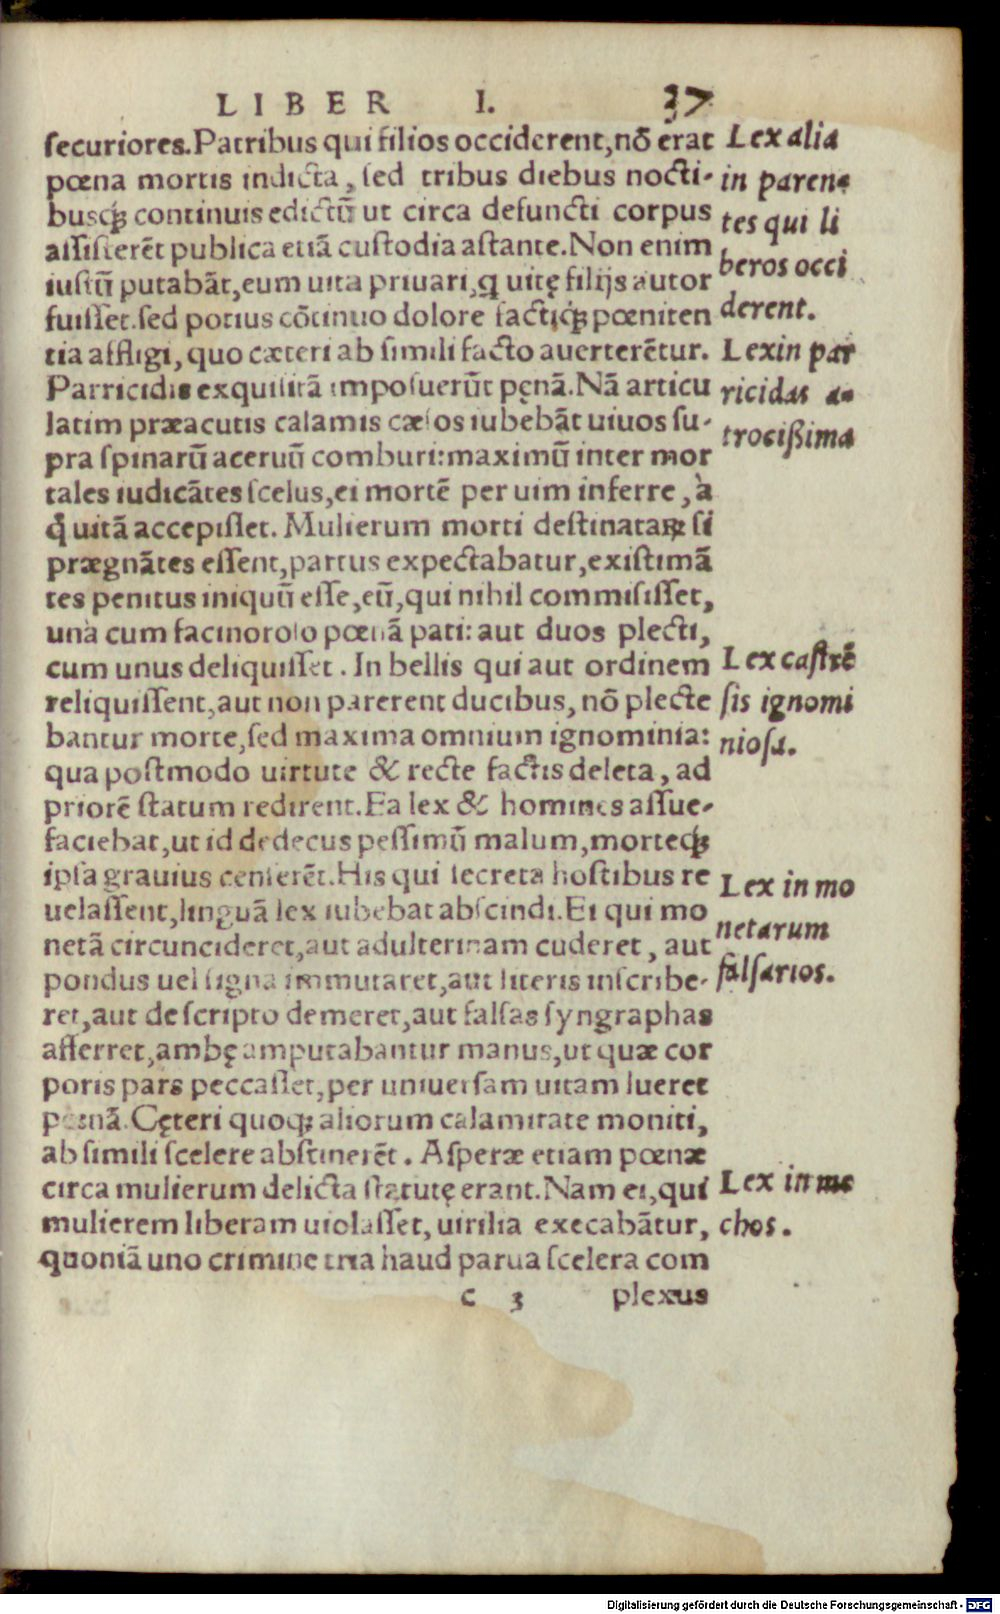 LIBER I. 37
securiores. Patribus qui filios occiderent, nõ erat
pœna mortis indicta, sed tribus diebus nocti-
busq̃ continuis edictũ ut circa defuncti corpus
assisterẽt publica etiã custodia astante. Non enim
iustũ putabãt, eum uita priuari, q uitę filijs autor
fuisset. sed potius cõtinuo dolore factiq̃ pœniten
tia affligi, quo cæteri ab simili facto auerterẽtur.
Parricidis exquisitã imposuerũt pęnã. Nã articu
latim præacutis calamis cæsos iubebãt uiuos su-
pra spinarũ aceruũ comburi: maximũ inter mor
tales iudicãtes scelus, ei mortẽ per uim inferre, à
q̃ uitã accepisset. Mulierum morti destinataꝝ si
prægnãtes essent, partus expectabatur, existimã
tes penitus iniquũ esse, eũ, qui nihil commisisset,
unà cum facinoroso pœnã pati: aut duos plecti,
cum unus deliquisset. In bellis qui aut ordinem
reliquissent, aut non parerent ducibus, nõ plecte
bantur morte, sed maxima omnium ignominia:
qua postmodo uirtute & recte factis deleta, ad
priorẽ statum redirent. Ea lex & homines assue-
faciebat, ut id dedecus pessimũ malum, morteq̃
ipsa grauius censerẽt. His qui secreta hostibus re
uelassent, linguã lex iubebat abscindi. Ei qui mo
netã circuncideret, aut adulterinam cuderet, aut
pondus uel signa immutaret, aut literis inscribe-
ret, aut de scripto demeret, aut falsas syngraphas
afferret, ambę amputabantur manus, ut quæ cor
poris pars peccasset, per uniuersam uitam lueret
pœnã. Cęteri quoqꝫ aliorum calamitate moniti,
ab simili scelere abstinerẽt. Asperæ etiam pœnæ
circa mulierum delicta statutę erant. Nam ei, qui
mulierem liberam uiolasset, uirilia execabãtur,
quoniã uno crimine tria haud parua scelera com
c 3 plexus
Lex alia
in paren-
tes qui li
beros occi
derent.
Lex in par
ricidas a-
trocißima
Lex castrẽ
sis ignomi
niosa.
Lex in mo
netarum
falsarios.
Lex in mę
chos.
Digitalisierung gefördert durch die Deutsche Forschungsgemeinschaft - DFG